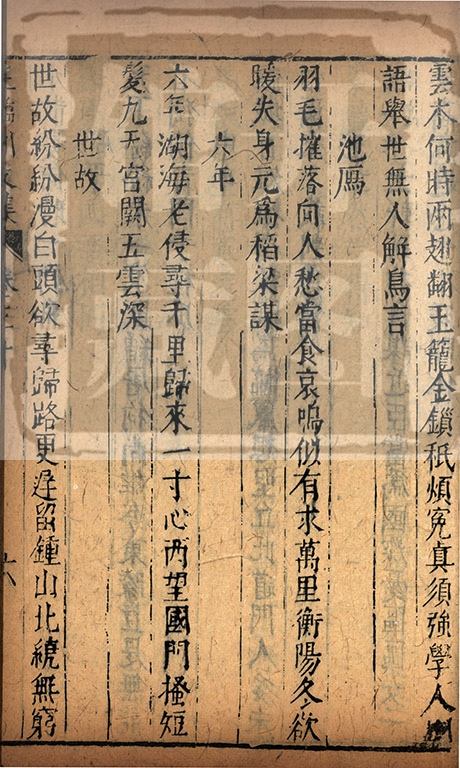 雲木何時兩翅翻玉籠金鎖秖煩寃真須強學人間
語舉世無人解鳥言
池鴈
羽毛摧落向人愁當食哀鳴似有求萬里衡陽冬欲
暖失身元為稻梁謀
六年
六年湖海老侵尋千里歸來一寸心西望國門搔短
髮九天宮闕五雲深
世故
世故紛紛漫白頭欲尋歸路更遲留鍾山北繞無窮